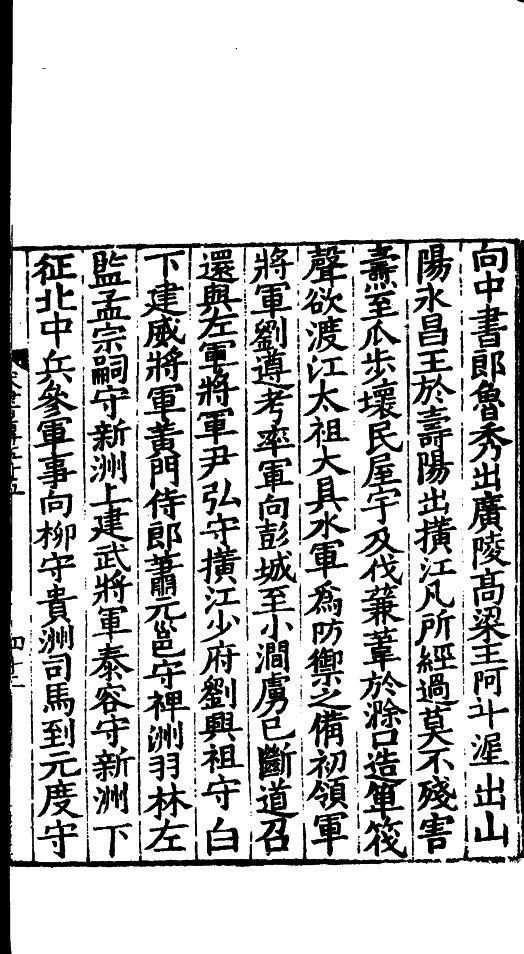 向中書郎魯秀出廣陵高梁王阿斗渥出山
陽永昌王於壽陽出撗江凡所經過莫不殘害
燾至瓜步壞民屋宇及伐蒹葦於滁口造箄筏
聲欲渡江太祖大具水軍爲防禦之備初領軍
將軍劉遵考率軍向彭城至小澗虜已斷道召
還與左軍將軍尹弘守撗江少府劉興祖守白
下建威將軍黃門侍郎蕭元邕守裨洲羽林左
監孟宗嗣守新洲上建武將軍泰容守新洲下
征北中兵參軍事向柳守貴洲司馬到元度守